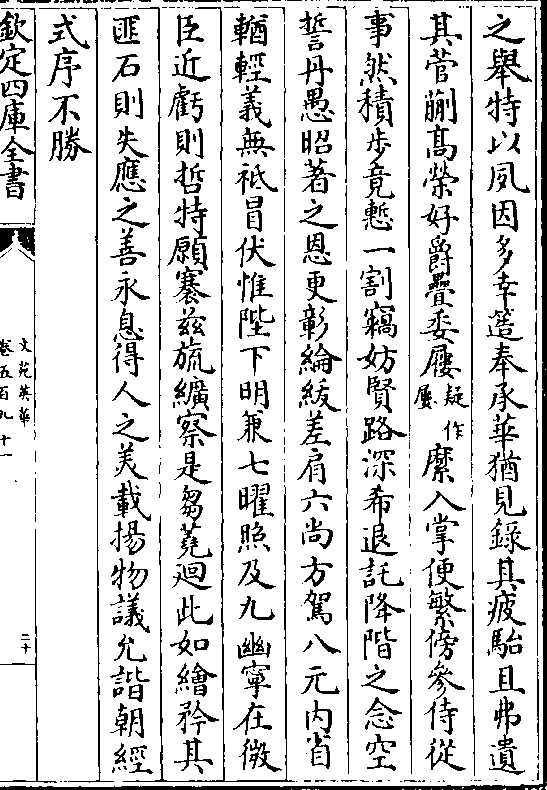 之舉特以夙因多幸簉奉承華猶見錄其疲駘且弗遺
其菅蒯髙榮好爵疊委屨疑作屢縻入掌便繁傍參侍從
事然積步竟慙一割竊妨賢路深希退託降階之念空
誓丹愚昭著之恩更彰綸綍差肩六尚方駕八元内省
輶輕義無祗冒伏惟陛下明兼七曜照及九幽寧在微
臣近虧則哲特願褰兹旒纊察是芻蕘廻此如繪矜其
匪石則失應之善永息得人之美載揚物議允諧朝經
式序不勝
欽定四庫全書
文苑英華
卷五百九十一
二十